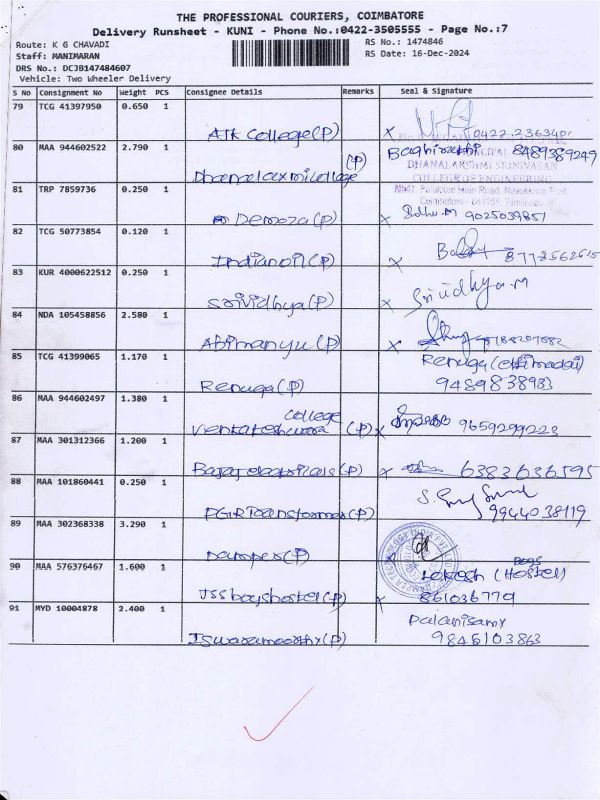 THE PROFESSIONAL COURIERS, COIMBATORE
Delivery Runsheet - KUNI - Phone No.:0422-3505555 - Page No.:7
Route: K G CHAVADI
RS No.: 1474846
Staff: MANIMARAN
RS Date: 16-Dec-2024
DRS No.: DCJB147484607
Vehicle: Two Wheeler Delivery
S No Consignment No Weight PCS Consignee Details Remarks Seal & Signature
79 TCG 41397950 0.650 1
AJK College(P) x
80 MAA 944602522 2.790 1
Baghirathi 8489389249
DHANALAKSHMI SRINIVASAN
COLLEGE OF ENGINEERING
Dhanalaxmi college (P)
81 TRP 7859736 0.250 1
Coimbatore - 641105, Tamilnadu
Demoza(P) x 9025039851
82 TCG 50773854 0.120 1
Indianoil(P) x
83 KUR 4000622512 0.250 1
Srividhya(P) x Srividhya.M
84 NDA 105458856 2.580 1
Abimanyu(P) x
85 TCG 41399065 1.170 1
Renuga(P) Renuga(ettimadai)
9489838933
86 MAA 944602497 1.380 1
college
Venkateshwara (P) x 9659299223
87 MAA 301312366 1.200 1
Bajaj electricals(P) x 6383636595
88 MAA 101860441 0.250 1
PGR Transformer(P) 9944038119
89 MAA 302368338 3.290 1
90 MAA 576376467 1.600 1
Boys
Lokesh (Hostel)
JSS boys hostel(P) x 861036779
91 MYD 10004878 2.400 1
Palanisamy
Iswaramoorthy(P) 9845103863